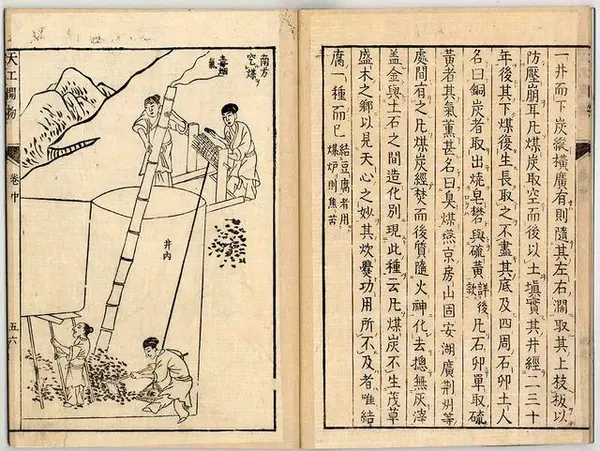 一井而下炭縱橫廣有則隨其左右濶取其上枝板以
防壓崩耳凡煤炭取空而後以土填實其井經二三十
年後其下煤復生長取之不盡其底及四周石卵土人
名曰銅炭者取出燒皂礬與硫黃詳後款凡石卵單取硫
黃者其氣薰甚名曰臭煤燕京房山固安湖廣荆州等
處間有之凡煤炭經焚而後質隨火神化去揔無灰滓
蓋金與土石之間造化別現此種云凡煤炭不生茂草
盛木之鄉以見天心之妙其炊爨功用所不及者唯結
腐一種而已結豆腐者用煤爐則焦苦
南方
煤
毒烟
氣
井內
天工開物
卷中
五六